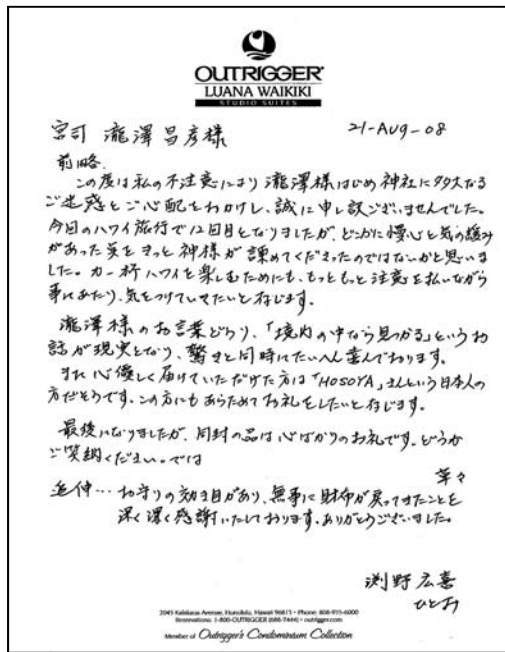 OUTRIGGER
LUANA WAIKIKI
STUDIO SUITES
宮司 瀧澤昌彦様
21-AUG-08
前略
この度は私の不注意により瀧澤様はじめ神社に多大なる
ご迷惑とご心配をおかけし、誠に申し訳ございませんでした。
今回のハワイ旅行で12回目となりましたが、どこかに慢心と気の緩み
があった矢をきっと神様が諌めてくださったのではないかと思いま
した。カ一杯ハワイを楽しむためにも、もっともっと注意を払いながら
事にあたり、気をつけていきたいと存じます。
瀧澤様のお言葉どうり、「境内の中なら見つかる」というお
話が現実となり、驚きと同時にたいへん喜んでおります。
また心優しく届けていただけた方は「HOSOYA」さんという日本人の
方だそうです。この方にもあらためてお礼をしたいと存じます。
最後になりましたが、同封の品は心ばかりのお礼です。どうか
ご笑納ください。では
草々
追伸…お守りの効き目があり、無事に財布が戻ってきたことを
深く深く感謝いたしております。ありがとうございました。
渕野広喜
ひとみ
2045 Kalakaua Avenue, Honolulu, Hawaii 96815 • Phone: 808-955-6000
Reservations: 1-800-OUTRIGGER (688-7444) • outrigger.com
Member of Outrigger's Condominium Collection